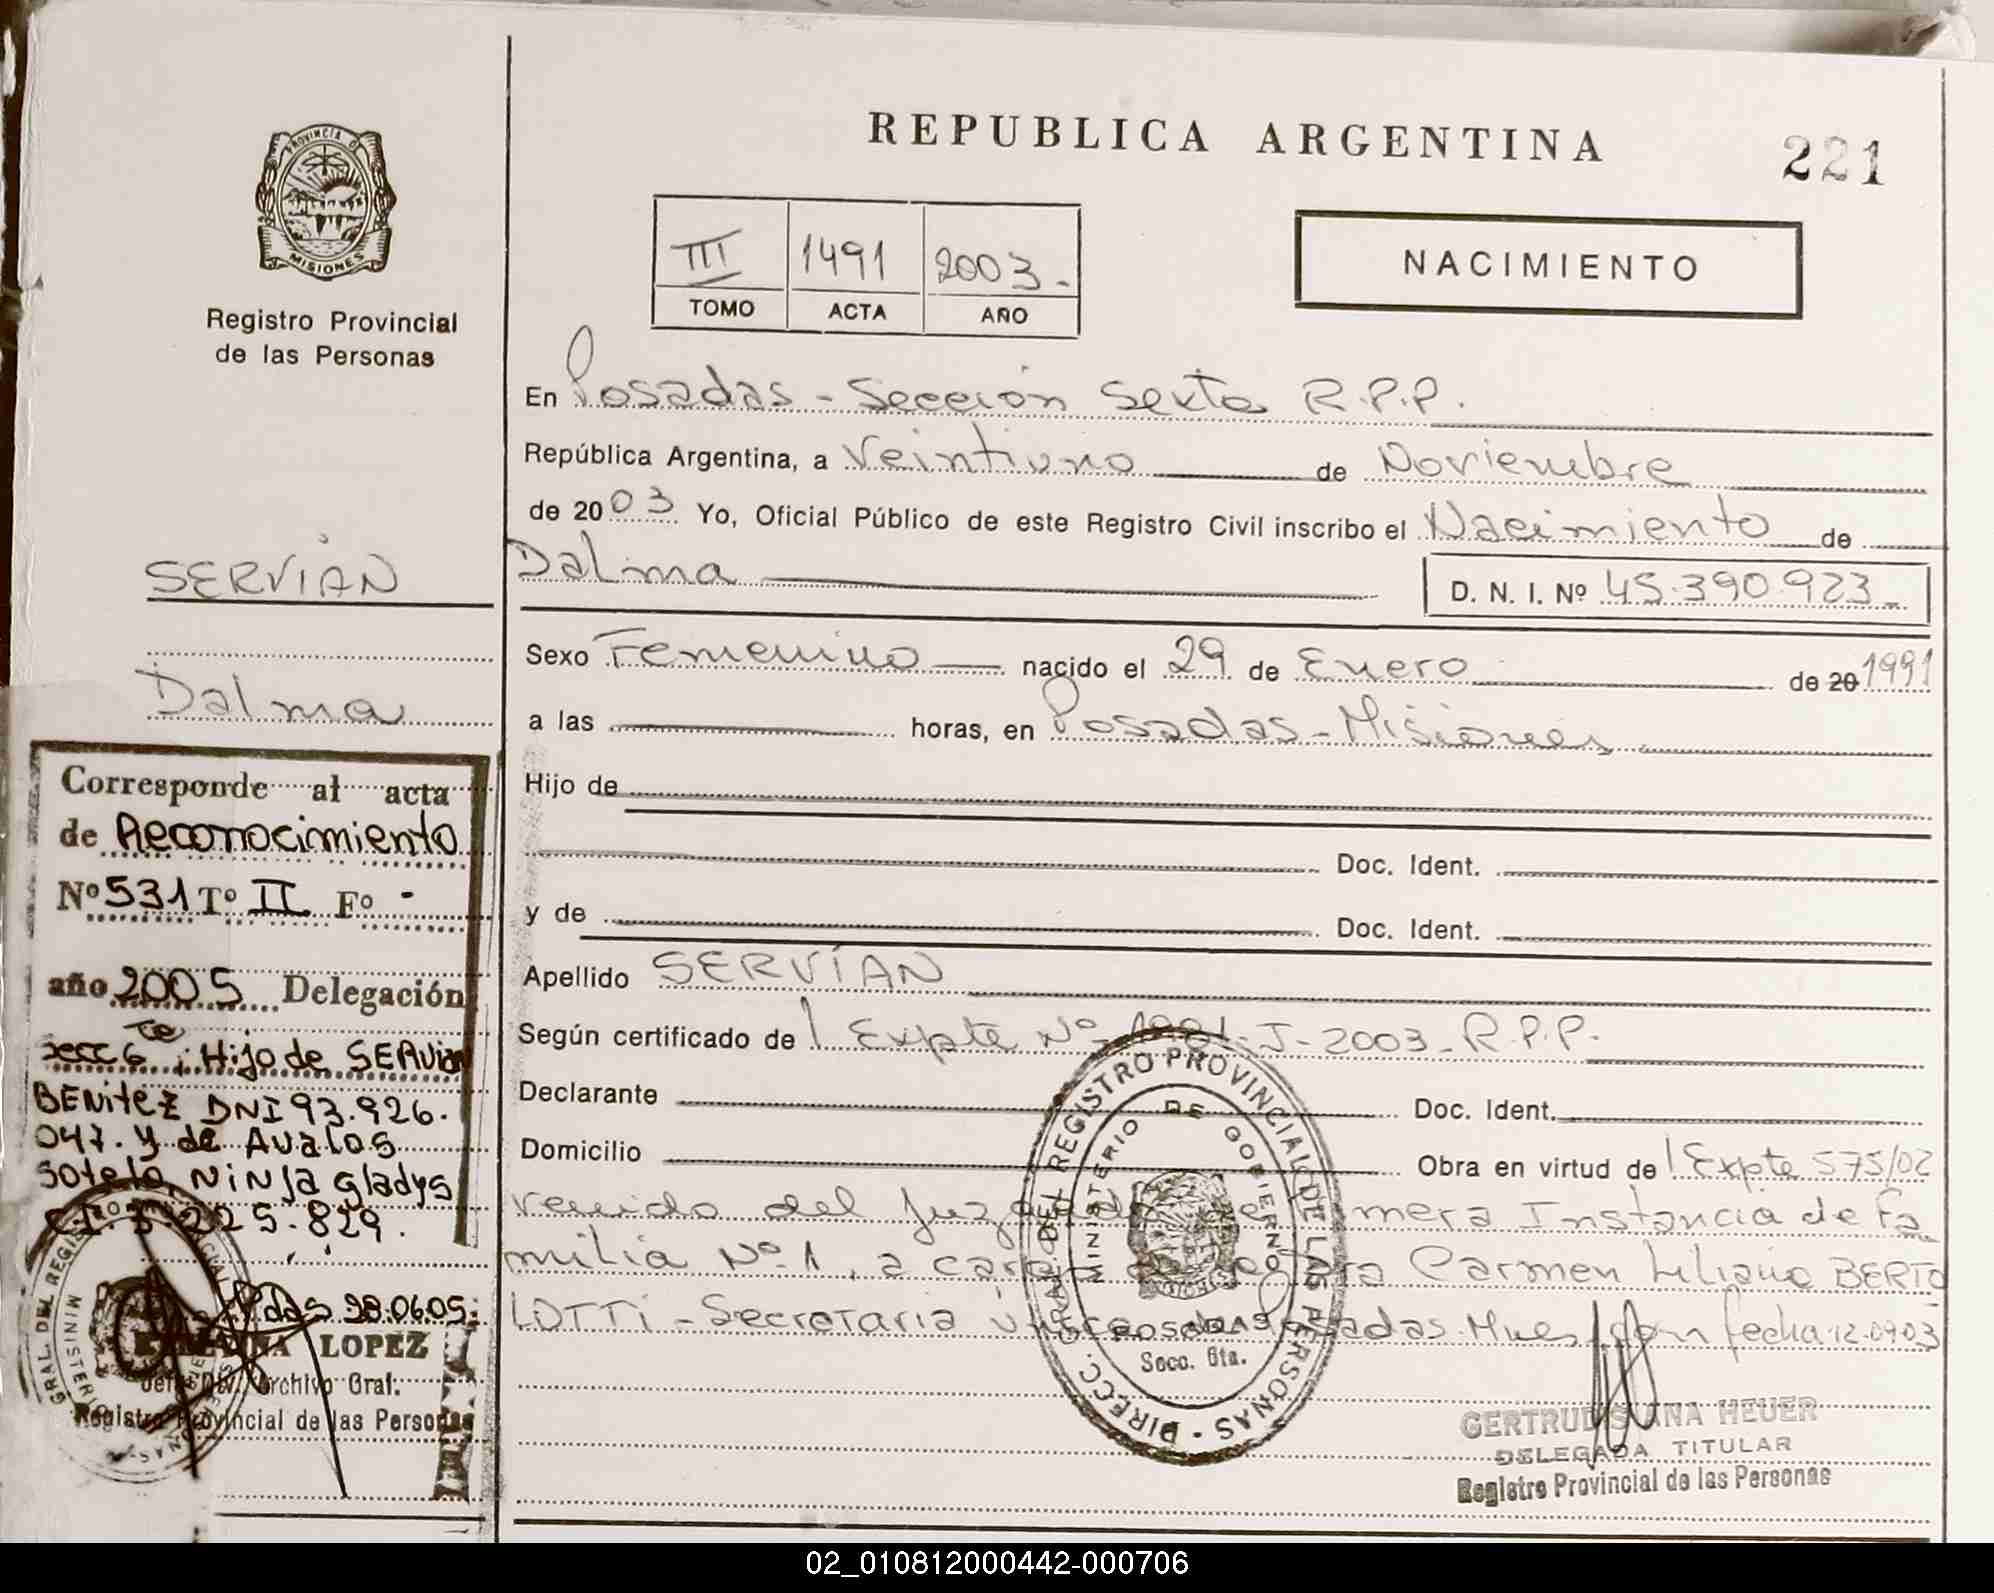 REPUBLICA ARGENTINA
221
PROVINCIA DE
MISIONES
Registro Provincial
de las Personas
III 1491 2003.-
TOMO ACTA AÑO
NACIMIENTO
En Posadas - Sección Sexta R.P.P.
República Argentina, a Veintiuno de Noviembre
de 20 03 Yo, Oficial Público de este Registro Civil inscribo el Nacimiento de
Dalma
D. N. I. Nº 45.390.923_
Sexo Femenino nacido el 29 de Enero de 20 1991
a las horas, en Posadas - Misiones
Hijo de
Doc. Ident.
y de Doc. Ident.
Apellido SERVIÁN
Según certificado de Expte Nº 1991-J-2003_R.P.P.-
Declarante Doc. Ident.
Domicilio Obra en virtud de Expte 575/02
venido del Juzgado de Primera Instancia de Fa
milia Nº 1, a cargo Carmen Liliana BERTO
LOTTI - Secretaria Posadas Mnes con fecha 12-09-03
DIRECC. GRAL. DEL REGISTRO PROVINCIAL DE LAS PERSONAS
MINISTERIO DE GOBIERNO
Posadas
Secc. 6ta.
GERTRUDIS ANA HEUER
DELEGADA TITULAR
Registro Provincial de las Personas
SERVIÁN
Dalma
Corresponde al acta
de Reconocimiento
Nº 531 Tº II Fº -
año 2005 Delegación
secc 6ta; Hijo de SERvian
BENitEZ DNI 93.926.
047. y de AvaLos
Sotelo, NiNfa Gladys
225.829.
Pdas 28.06.05.
LOPEZ
Jefe Div. Archivo Gral.
Registro Provincial de las Personas
02_010812000442-000706